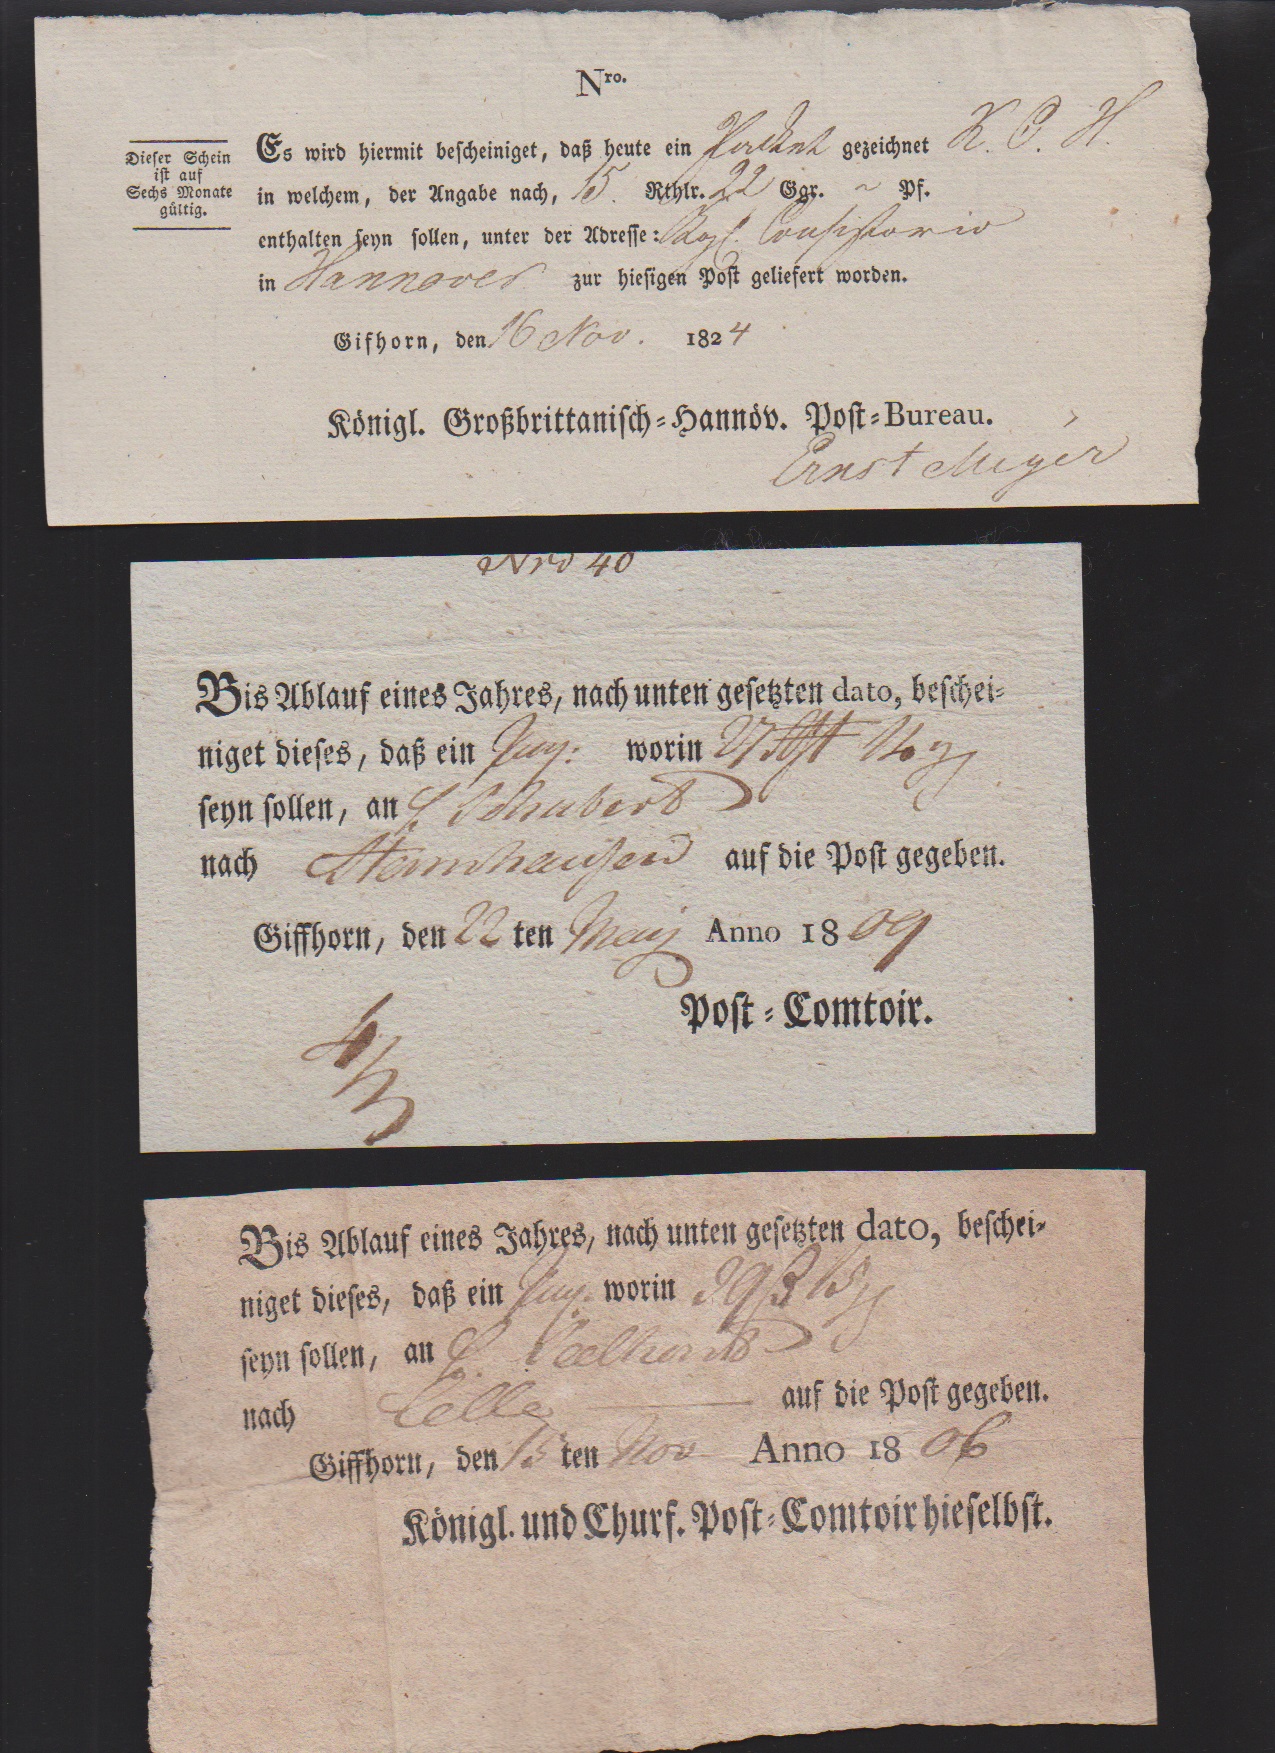 Nro.
Dieser Schein
ist auf
Sechs Monate
gültig.
Es wird hiermit bescheiniget, daß heute ein Packet gezeichnet K. C. H.
in welchem, der Angabe nach, 15. Rthlr. 22 Ggr. ~ Pf.
enthalten seyn sollen, unter der Adresse: Kgl. Consistorio
in Hannover zur hiesigen Post geliefert worden.
Gifhorn, den 16 Nov. 1824
Königl. Großbrittanisch-Hannöv. Post-Bureau.
Ernst Meyer
Nro 40
Bis Ablauf eines Jahres, nach unten gesetzten dato, beschei-
niget dieses, daß ein worin 27
seyn sollen, an H Schubert
nach auf die Post gegeben.
Giffhorn, den 22 ten Maij Anno 1809
Post-Comtoir.
Bis Ablauf eines Jahres, nach unten gesetzten dato, beschei-
niget dieses, daß ein worin
seyn sollen, an H.
nach Celle auf die Post gegeben.
Giffhorn, den 15 ten Nov Anno 1806
Königl. und Churf. Post-Comtoir hieselbst.